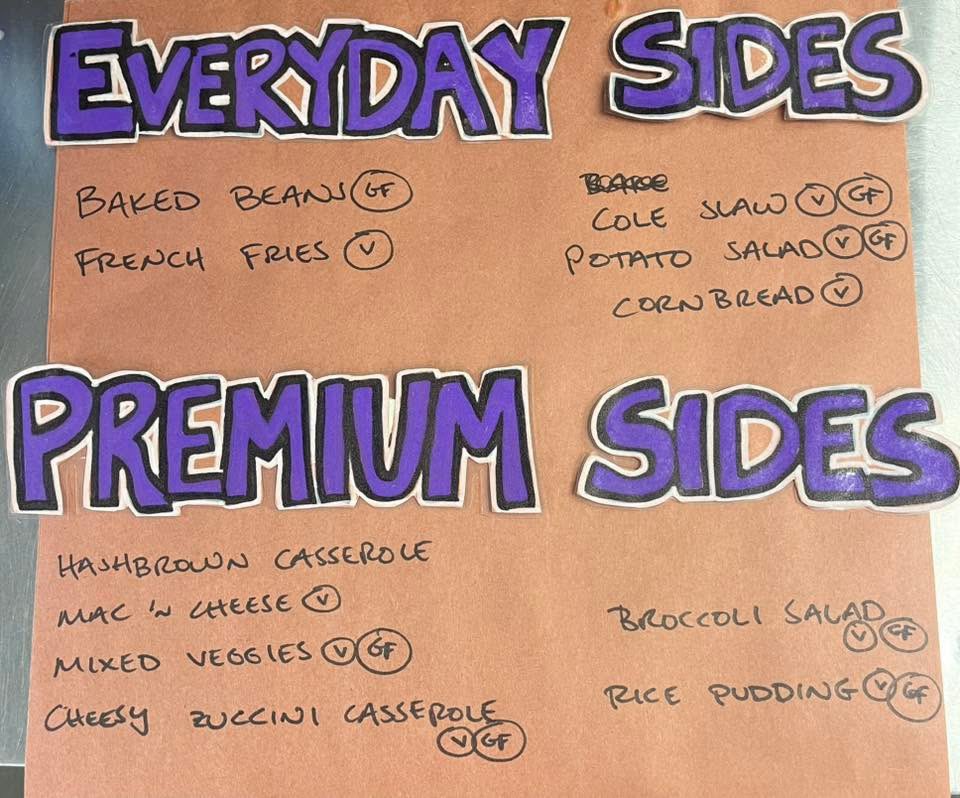 EVERYDAY SIDES
BAKED BEANS GF
FRENCH FRIES V
COLE SLAW V GF
POTATO SALAD V GF
CORNBREAD V
PREMIUM SIDES
HASHBROWN CASSEROLE
MAC 'N CHEESE V
MIXED VEGGIES V GF
CHEESY ZUCCINI CASSEROLE
V GF
BROCCOLI SALAD
V GF
RICE PUDDING V GF